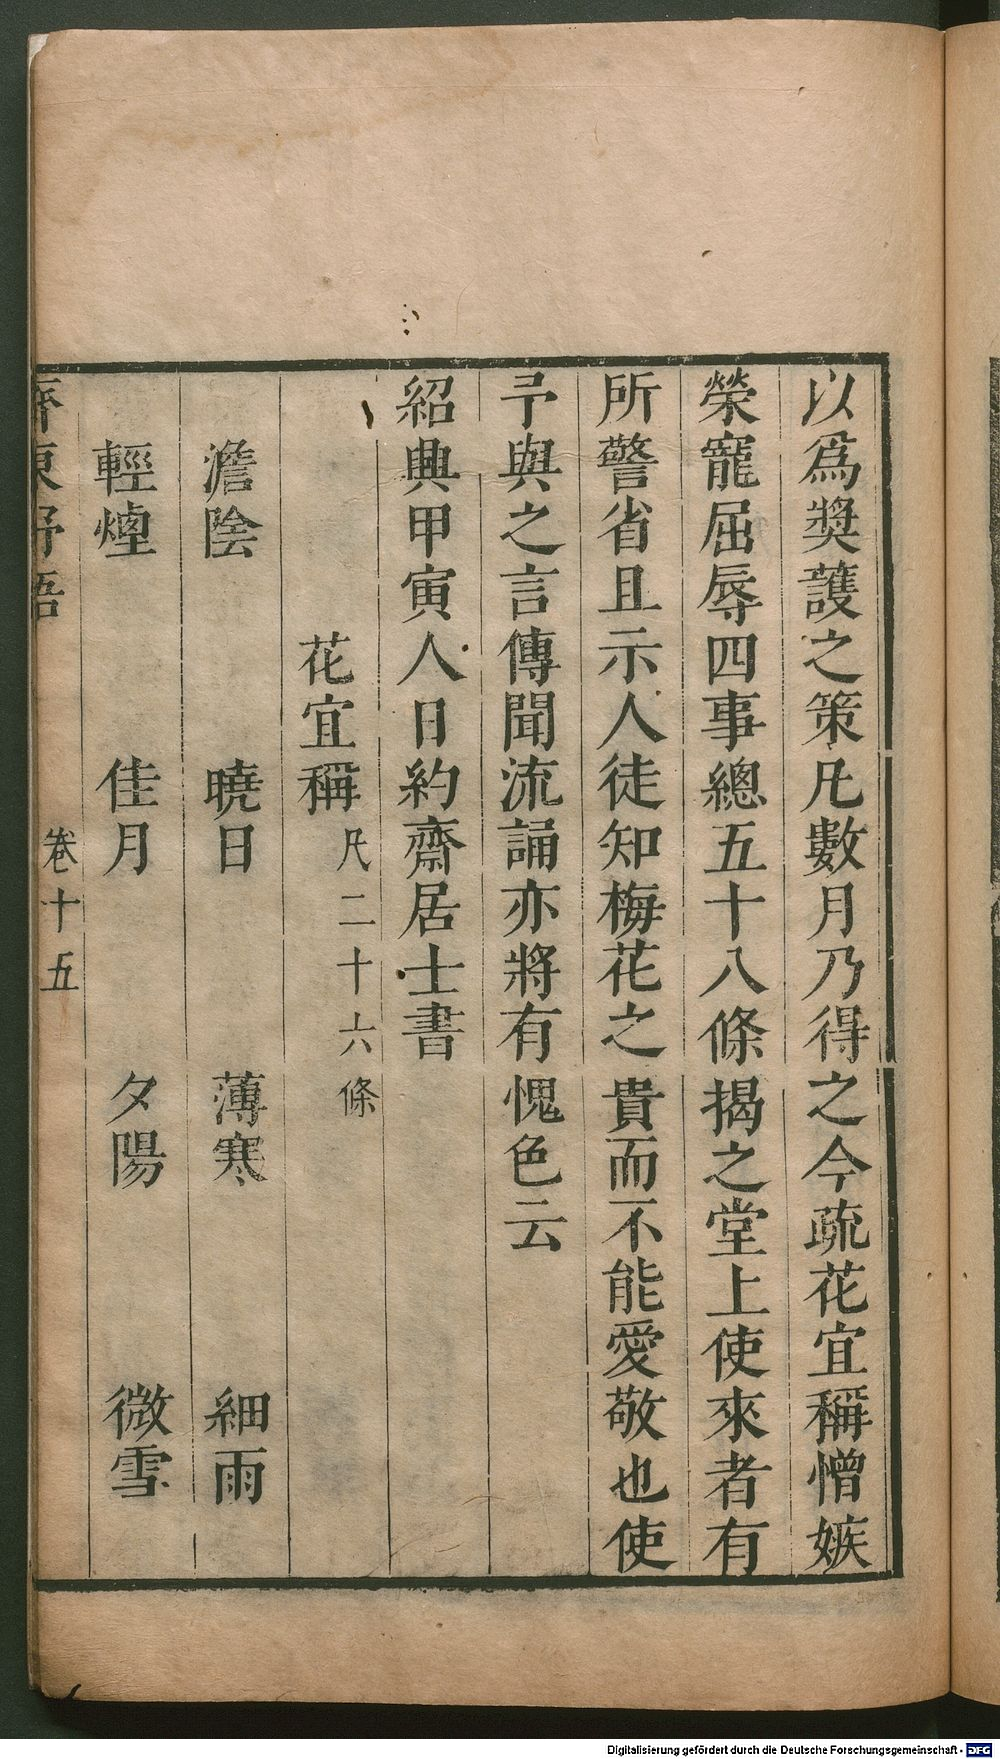 以爲奬䕶之策凡數月乃得之今疏花宜稱憎嫉
榮寵屈辱四事總五十八條揭之堂上使來者有
所警省且示人徒知梅花之貴而不能愛敬也使
予與之言傳聞流誦亦將有愧色云
紹興甲寅人日約齋居士書
花宜稱凡二十六條
澹陰 曉日 薄寒 細雨
輕煙 佳月 夕陽 微雪
齊東野語 卷十五
Digitalisierung gefördert durch die Deutsche Forschungsgemeinschaft - DFG